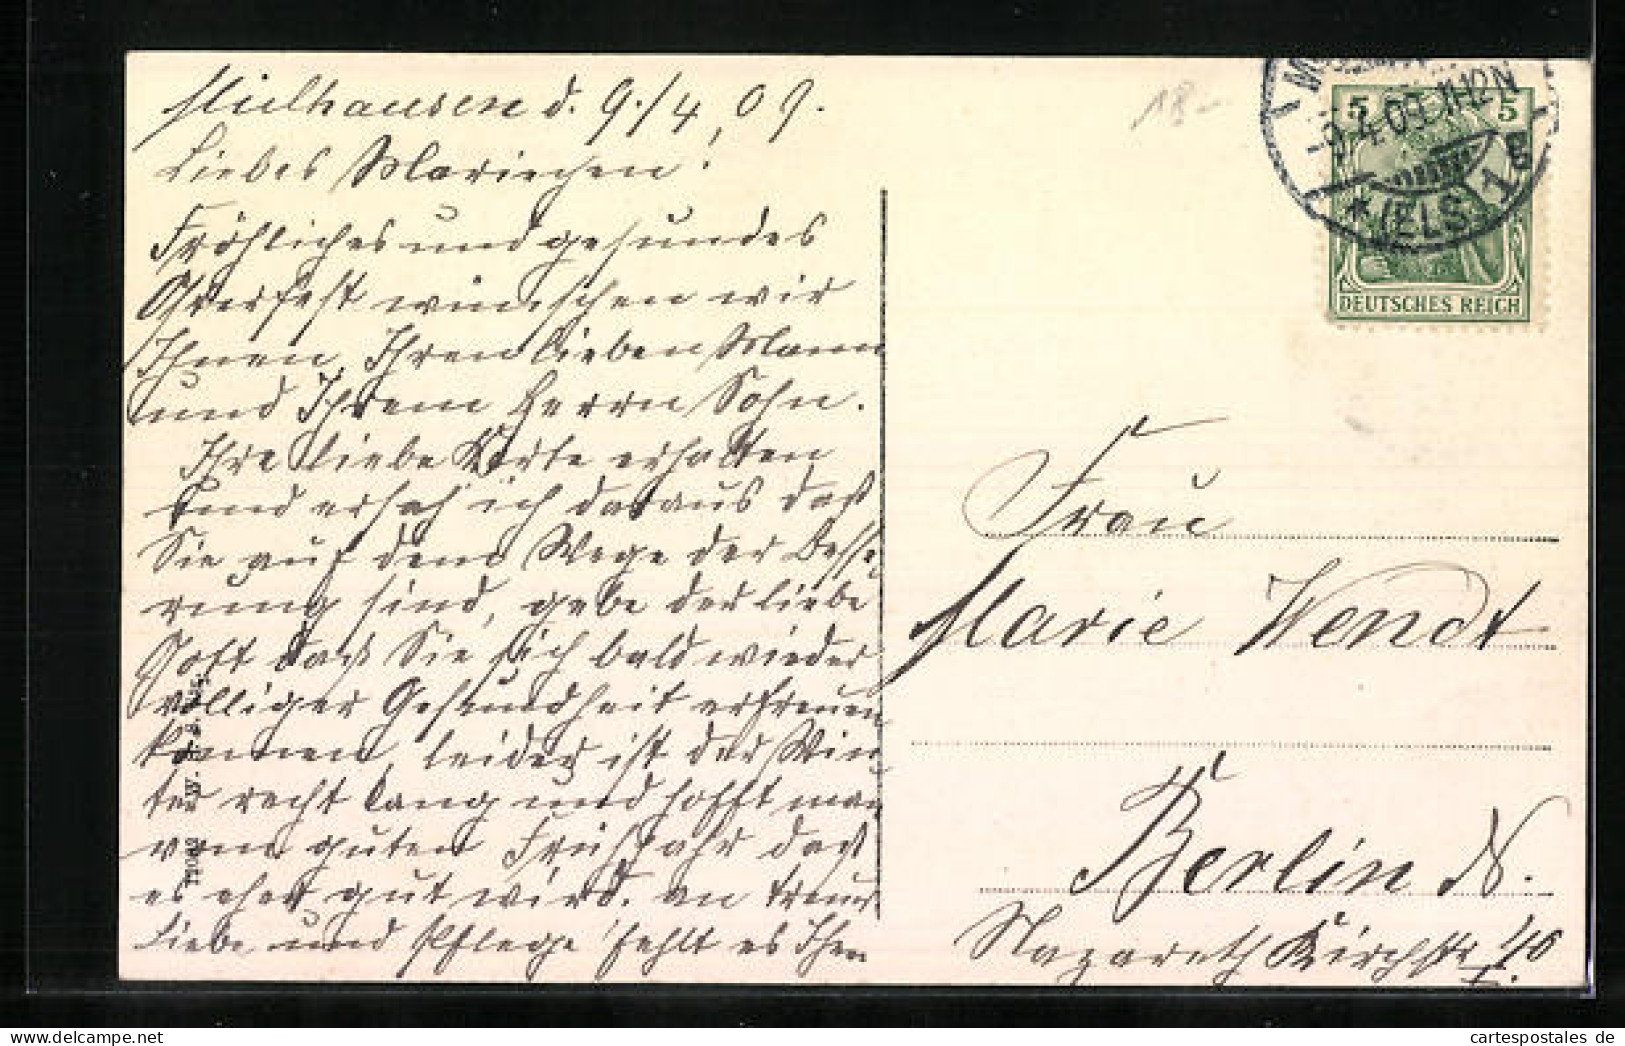 Mülhausen d. 9./4.09.
Liebes Mariechen!
Fröhliches und gesundes
Osterfest wünschen wir
Ihnen, Ihren lieben Mann
und Ihrem Herrn Sohn.
Ihre liebe Karte erhalten
und ersah ich daraus daß
Sie auf dem Wege der Besse-
rung sind, gebe der liebe
Gott daß Sie sich bald wieder
völliger Gesundheit erfreuen
können, leider ist der Win-
ter recht lang und hofft man
vom guten Frühjahr daß
es eher gut wird. an treuer
Liebe und Pflege fehlt es Ihn
18-
-9.4.09.11-12N
* (ELS.) 1 g
5 5
DEUTSCHES REICH
Frau
Marie Wendt
Berlin N.
Nazareth Kirchstr 40
I.
cartespostales de